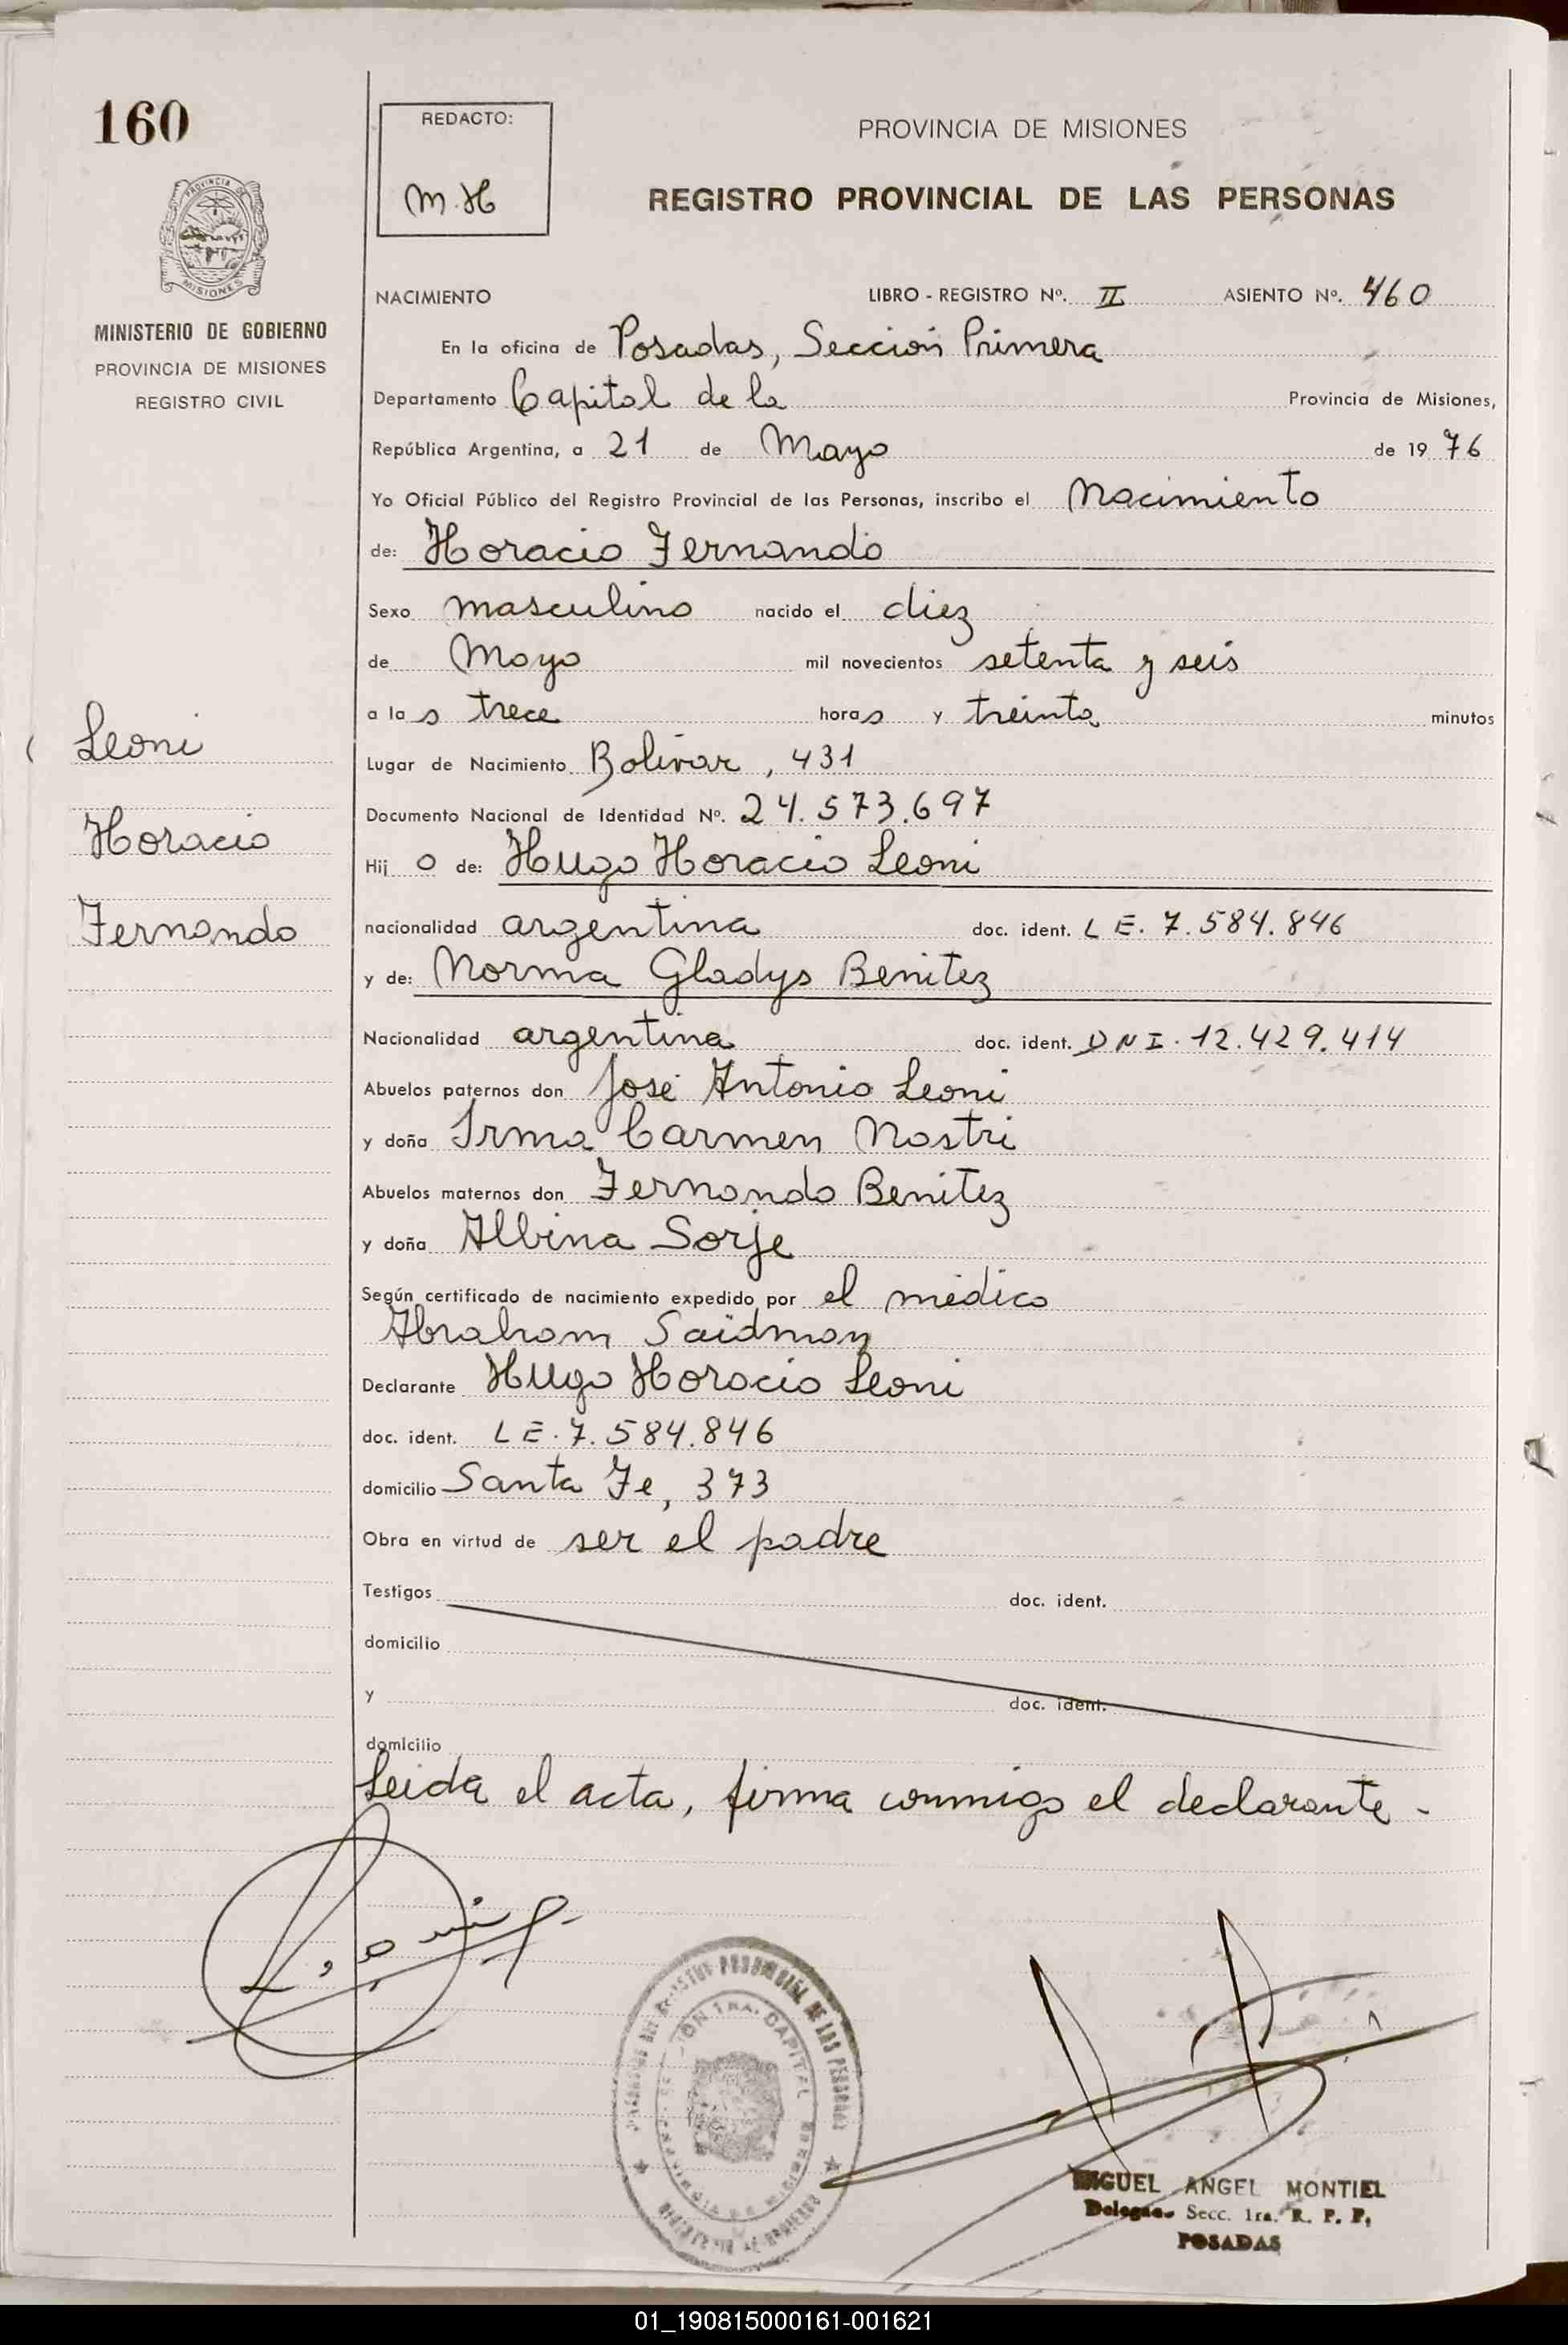 160
REDACTO:
M.H
PROVINCIA DE MISIONES
REGISTRO PROVINCIAL DE LAS PERSONAS
PROVINCIA DE
MISIONES
MINISTERIO DE GOBIERNO
PROVINCIA DE MISIONES
REGISTRO CIVIL
NACIMIENTO LIBRO - REGISTRO Nº. II ASIENTO Nº. 460
En la oficina de Posadas, Sección Primera
Departamento Capital de la Provincia de Misiones,
República Argentina, a 21 de Mayo de 19 76
Yo Oficial Público del Registro Provincial de las Personas, inscribo el Nacimiento
de: Horacio Fernando
Sexo masculino nacido el diez
de Mayo mil novecientos setenta y seis
a las trece horas y treinta minutos
Leoni
Lugar de Nacimiento Bolívar, 431
Documento Nacional de Identidad Nº. 24.573.697
Horacio
Hijo de: Hugo Horacio Leoni
Fernando
nacionalidad argentina doc. ident. L E. 7.584.846
y de: Norma Gladys Benitez
Nacionalidad argentina doc. ident. D N I. 12.429.414
Abuelos paternos don José Antonio Leoni
y doña Irma Carmen Nastri
Abuelos maternos don Fernando Benitez
y doña Albina Sorje
Según certificado de nacimiento expedido por el médico
Abraham Saidman
Declarante Hugo Horacio Leoni
doc. ident. L E. 7.584.846
domicilio Santa Fe, 373
Obra en virtud de ser el padre
Testigos doc. ident.
domicilio
y doc. ident.
domicilio
Leida el acta, firma conmigo el declarante -
MIGUEL ANGEL MONTIEL
Secc. 1ra. R. P. P.
POSADAS
01_190815000161-001621